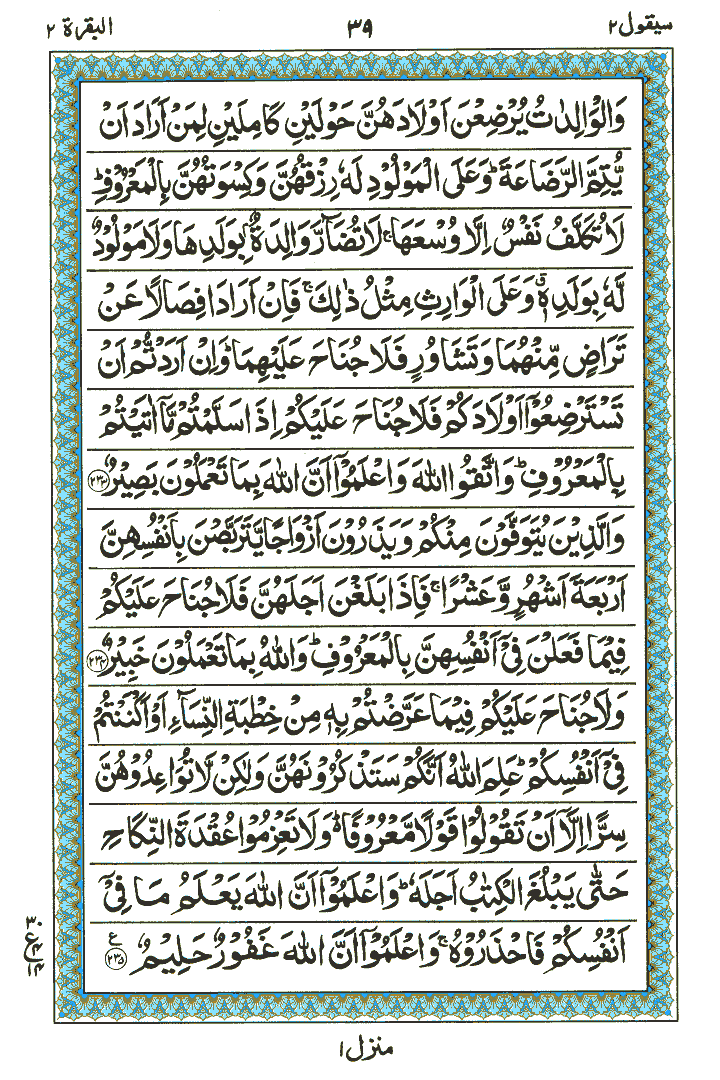 سيقول ٢ ٣٩ البقرة ٢
وَالْوَالِدٰتُ يُرْضِعْنَ اَوْلَادَهُنَّ حَوْلَيْنِ كَامِلَيْنِ لِمَنْ اَرَادَ اَنْ
يُّتِمَّ الرَّضَاعَةَ ؕ وَعَلَى الْمَوْلُوْدِ لَهٗ رِزْقُهُنَّ وَكِسْوَتُهُنَّ بِالْمَعْرُوْفِ ؕ
لَا تُكَلَّفُ نَفْسٌ اِلَّا وُسْعَهَا ۚ لَا تُضَآرَّ وَالِدَةٌۢ بِوَلَدِهَا وَلَا مَوْلُوْدٌ
لَّهٗ بِوَلَدِهٖ ۗ وَعَلَى الْوَارِثِ مِثْلُ ذٰلِكَ ۚ فَاِنْ اَرَادَا فِصَالًا عَنْ
تَرَاضٍ مِّنْهُمَا وَتَشَاوُرٍ فَلَا جُنَاحَ عَلَيْهِمَا ؕ وَاِنْ اَرَدْتُّمْ اَنْ
تَسْتَرْضِعُوْۤا اَوْلَادَكُمْ فَلَا جُنَاحَ عَلَيْكُمْ اِذَا سَلَّمْتُمْ مَّاۤ اٰتَيْتُمْ
بِالْمَعْرُوْفِ ؕ وَاتَّقُوا اللّٰهَ وَاعْلَمُوْۤا اَنَّ اللّٰهَ بِمَا تَعْمَلُوْنَ بَصِيْرٌ ﴿۲۳۳﴾
وَالَّذِيْنَ يُتَوَفَّوْنَ مِنْكُمْ وَيَذَرُوْنَ اَزْوَاجًا يَّتَرَبَّصْنَ بِاَنْفُسِهِنَّ
اَرْبَعَةَ اَشْهُرٍ وَّعَشْرًا ۚ فَاِذَا بَلَغْنَ اَجَلَهُنَّ فَلَا جُنَاحَ عَلَيْكُمْ
فِيْمَا فَعَلْنَ فِيْۤ اَنْفُسِهِنَّ بِالْمَعْرُوْفِ ؕ وَاللّٰهُ بِمَا تَعْمَلُوْنَ خَبِيْرٌ ﴿۲۳۴﴾
وَلَا جُنَاحَ عَلَيْكُمْ فِيْمَا عَرَّضْتُمْ بِهٖ مِنْ خِطْبَةِ النِّسَآءِ اَوْ اَكْنَنْتُمْ
فِيْۤ اَنْفُسِكُمْ ؕ عَلِمَ اللّٰهُ اَنَّكُمْ سَتَذْكُرُوْنَهُنَّ وَلٰكِنْ لَّا تُوَاعِدُوْهُنَّ
سِرًّا اِلَّاۤ اَنْ تَقُوْلُوْا قَوْلًا مَّعْرُوْفًا ؕ وَلَا تَعْزِمُوْا عُقْدَةَ النِّكَاحِ
حَتّٰى يَبْلُغَ الْكِتٰبُ اَجَلَهٗ ؕ وَاعْلَمُوْۤا اَنَّ اللّٰهَ يَعْلَمُ مَا فِيْۤ
اَنْفُسِكُمْ فَاحْذَرُوْهُ ۚ وَاعْلَمُوْۤا اَنَّ اللّٰهَ غَفُوْرٌ حَلِيْمٌ ﴿۲۳۵﴾ ع
٣٠
ع ۴
١٤
منزل ١